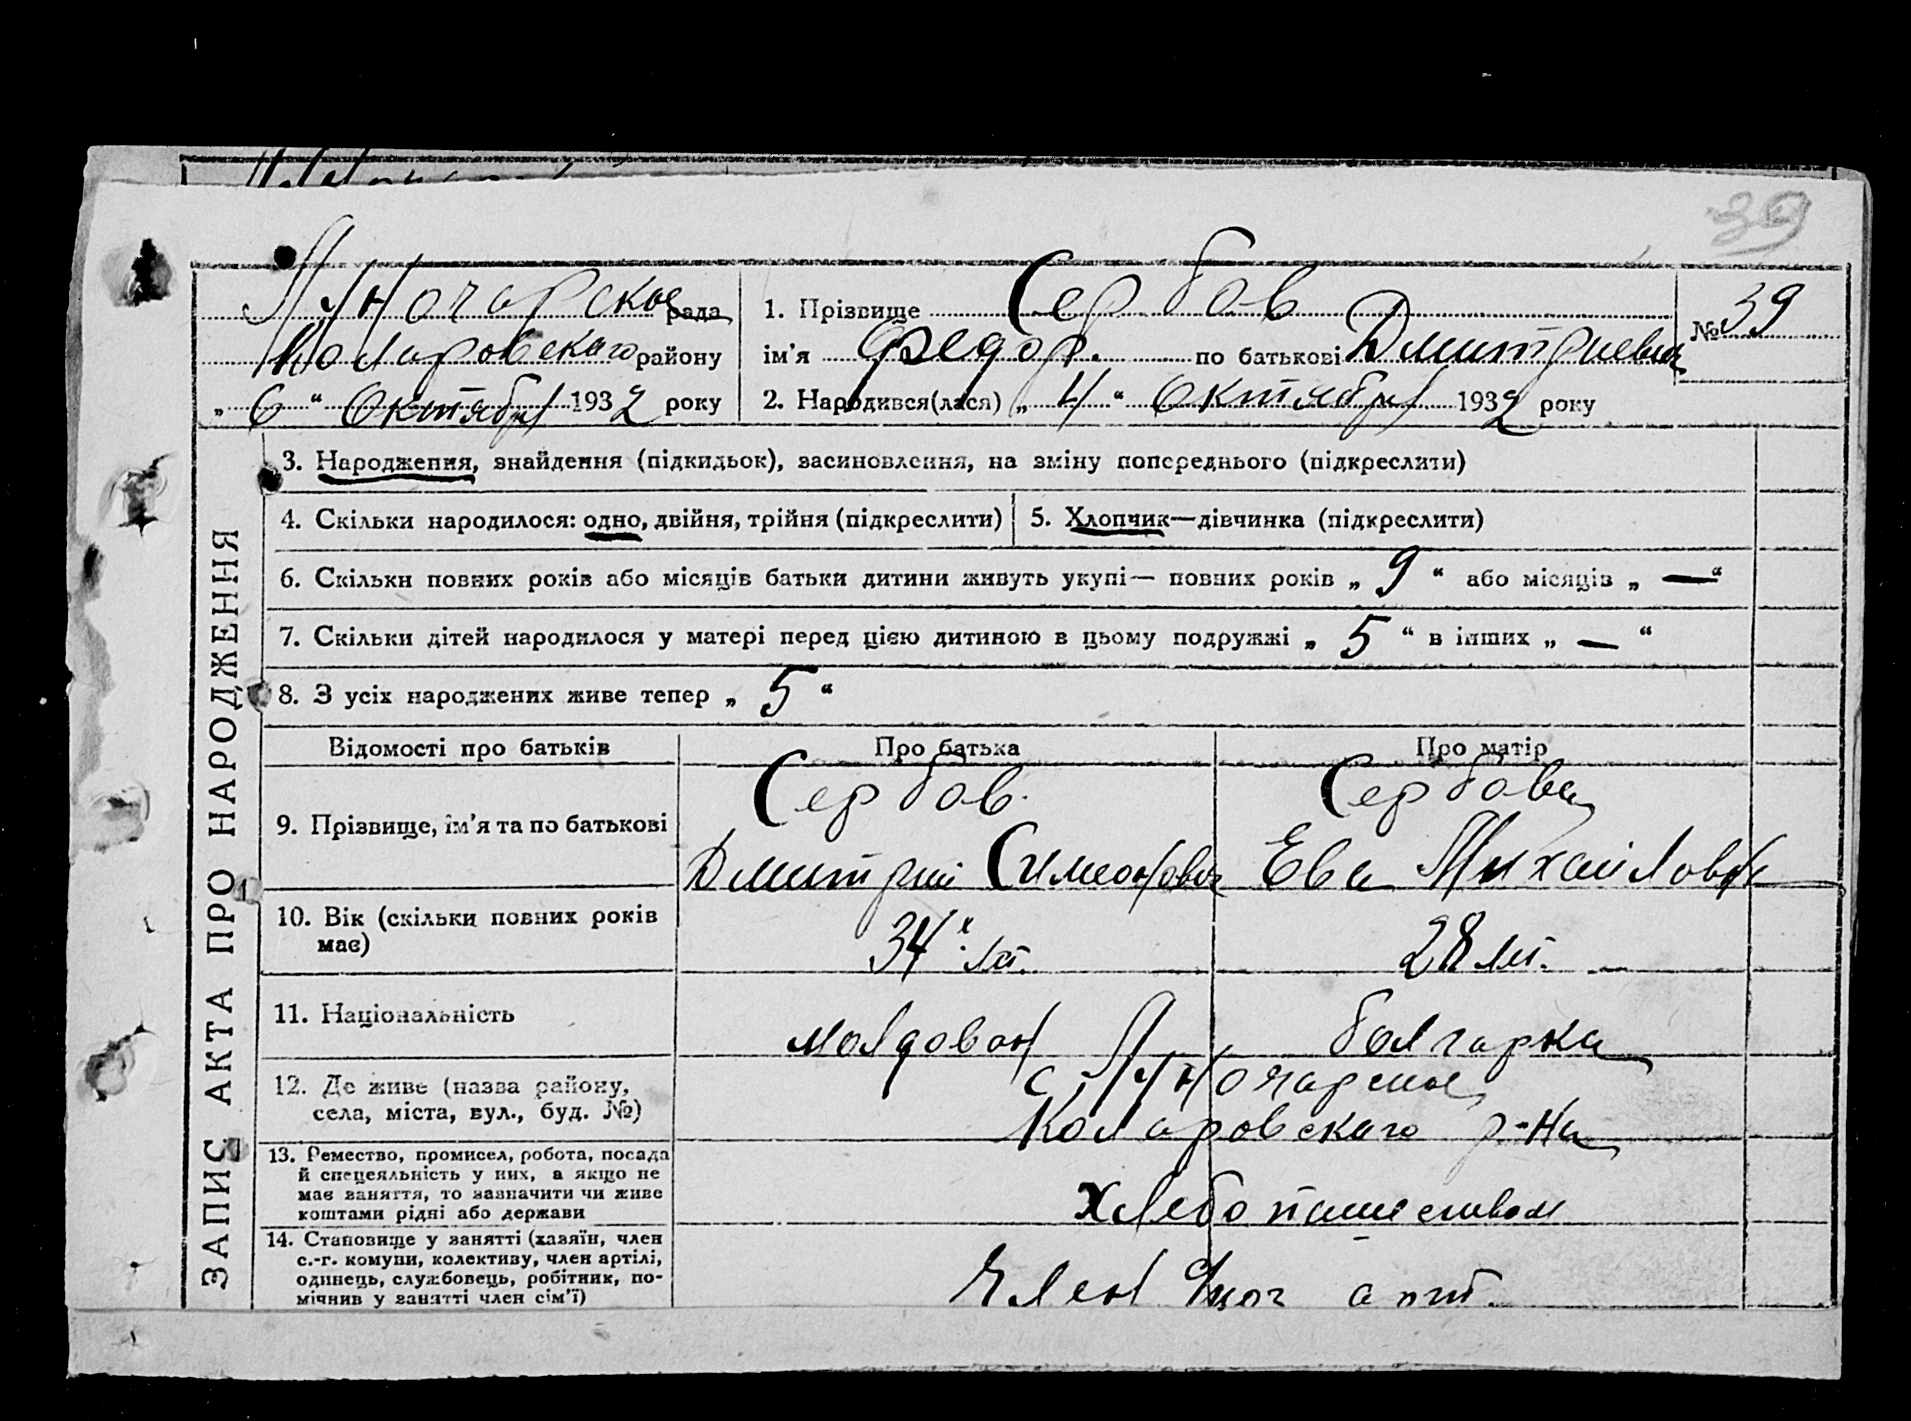 39
Луночарское рада
Коларовского району
„ 6 “ Октября 1932 року
1. Прізвище Сербов
ім'я Федор. по батькові Дмитриевич
2. Народився(лася) „ 4 “ Октября 1932 року
№ 39
ЗАПИС АКТА ПРО НАРОДЖЕННЯ
3. Народження, знайдення (підкидьок), засиновлення, на зміну попереднього (підкреслити)
4. Скільки народилося: одно, двійня, трійня (підкреслити)
5. Хлопчик—дівчинка (підкреслити)
6. Скільки повних років або місяців батьки дитини живуть укупі— повних років „ 9 “ або місяців „ — “
7. Скільки дітей народилося у матері перед цією дитиною в цьому подружжі „ 5 “ в інших „ — “
8. З усіх народжених живе тепер „ 5 “
Відомості про батьків
Про батька
Про матір
9. Прізвище, ім'я та по батькові
Сербов.
Дмитрий Симеонович
Сербова
Ева Михайловна
10. Вік (скільки повних років
має)
34 лет.
28 лет.
11. Національність
молдован
болгарка
12. Де живе (назва району,
села, міста, вул., буд. №)
с. Луночарское
Коларовского р-на
13. Ремество, промисел, робота, посада
й спецеяльність у них, а якщо не
має заняття, то зазначити чи живе
коштами рідні або держави
хлебопашеством
14. Становище у занятті (хазяїн, член
с.-г. комуни, колективу, член артілі,
одинець, службовець, робітник, по-
мічнив у занятті член сім'ї)
Член арт.